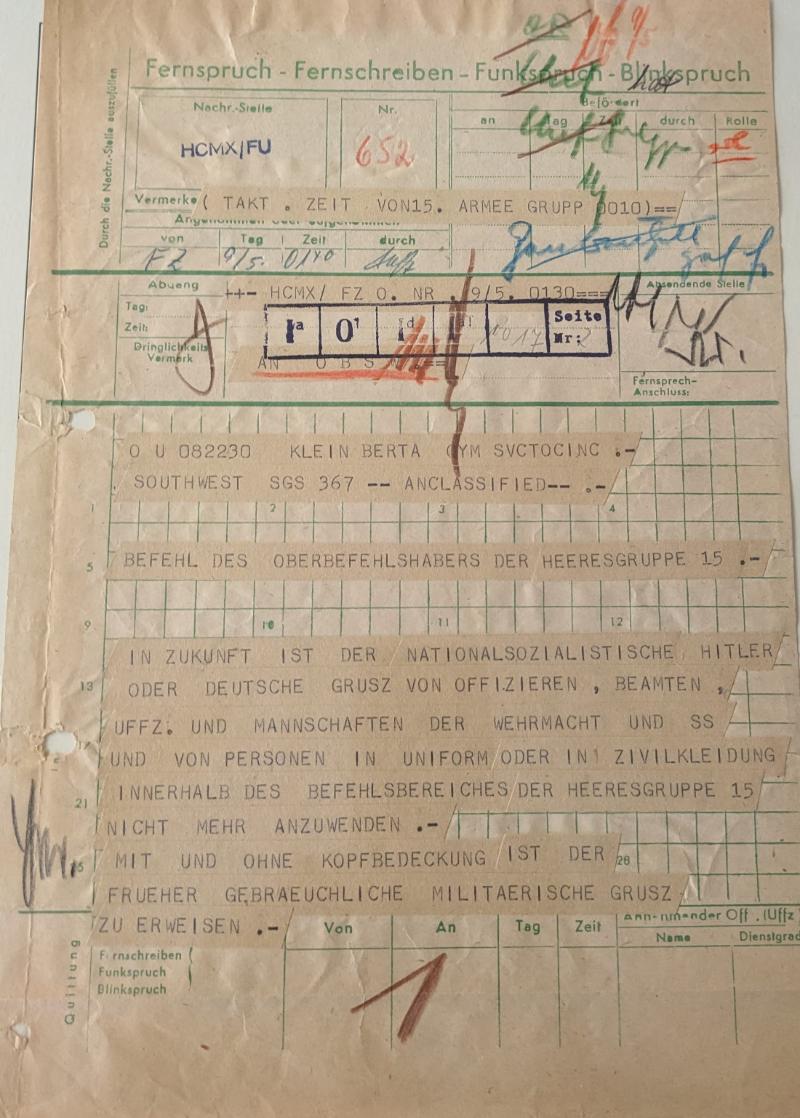 Fernspruch - Fernschreiben - Funkspruch - Blinkspruch
Durch die Nachr.-Stelle auszufüllen
Nachr.-Stelle
Nr.
Befördert
an
Tag
Zeit
durch
Rolle
HCMX/FU
652
Vermerke
( TAKT . ZEIT VON15. ARMEE GRUPP 0010)==
Angenommen oder aufgenommen
von
Tag
Zeit
durch
FZ
9/5.
0140
Abgang
++- HCMX/ FZ O. NR . 9/5. 0130===
Absendende Stelle
Tag:
Zeit:
Dringlichkeits
Vermerk
Ia
O1
Id
Seite
Nr:
AN O B S
Fernsprech-
Anschluss:
O U 082230 KLEIN BERTA QYM SVCTOCINC .-
. SOUTHWEST SGS 367 -- ANCLASSIFIED-- .-
1
2
3
4
5
BEFEHL DES OBERBEFEHLSHABERS DER HEERESGRUPPE 15 .-
9
10
11
12
IN ZUKUNFT IST DER NATIONALSOZIALISTISCHE HITLER
13
ODER DEUTSCHE GRUSZ VON OFFIZIEREN , BEAMTEN ,
UFFZ. UND MANNSCHAFTEN DER WEHRMACHT UND SS
17
UND VON PERSONEN IN UNIFORM ODER IN ZIVILKLEIDUNG
21
INNERHALB DES BEFEHLSBEREICHES DER HEERESGRUPPE 15
NICHT MEHR ANZUWENDEN .-
MIT UND OHNE KOPFBEDECKUNG IST DER
28
FRUEHER GEBRAEUCHLICHE MILITAERISCHE GRUSZ
ZU ERWEISEN .-
Quittung
Von
An
Tag
Zeit
Annehmender Off. (Uffz
Name
Dienstgrad
Fernschreiben
Funkspruch
Blinkspruch